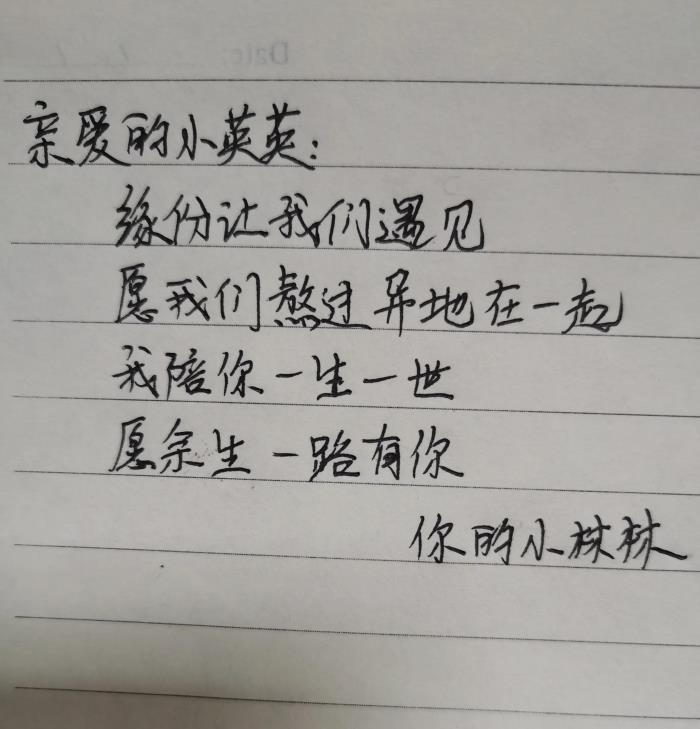 亲爱的小英英:
缘份让我们遇见
愿我们熬过异地在一起
我陪你一生一世
愿余生一路有你
你的小林林